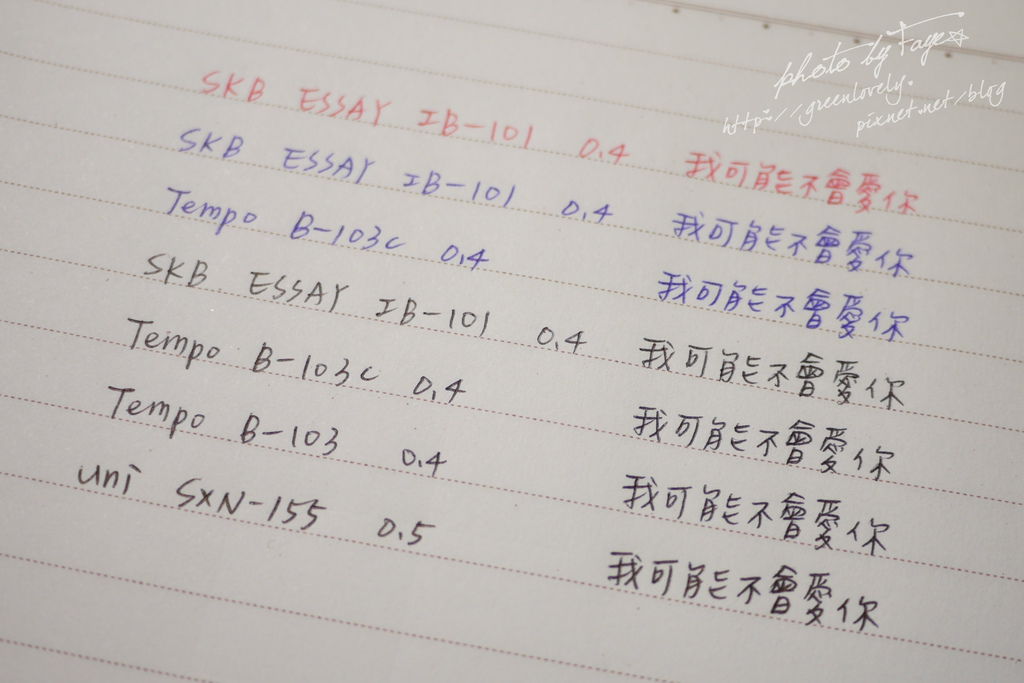 photo by Faye☆
http://greenlovely.
pixnet.net/blog
SKB ESSAY IB-101 0.4 我可能不會愛你
SKB ESSAY IB-101 0.4 我可能不會愛你
Tempo B-103c 0.4 我可能不會愛你
SKB ESSAY IB-101 0.4 我可能不會愛你
Tempo B-103c 0.4 我可能不會愛你
Tempo B-103 0.4 我可能不會愛你
uni SXN-155 0.5 我可能不會愛你